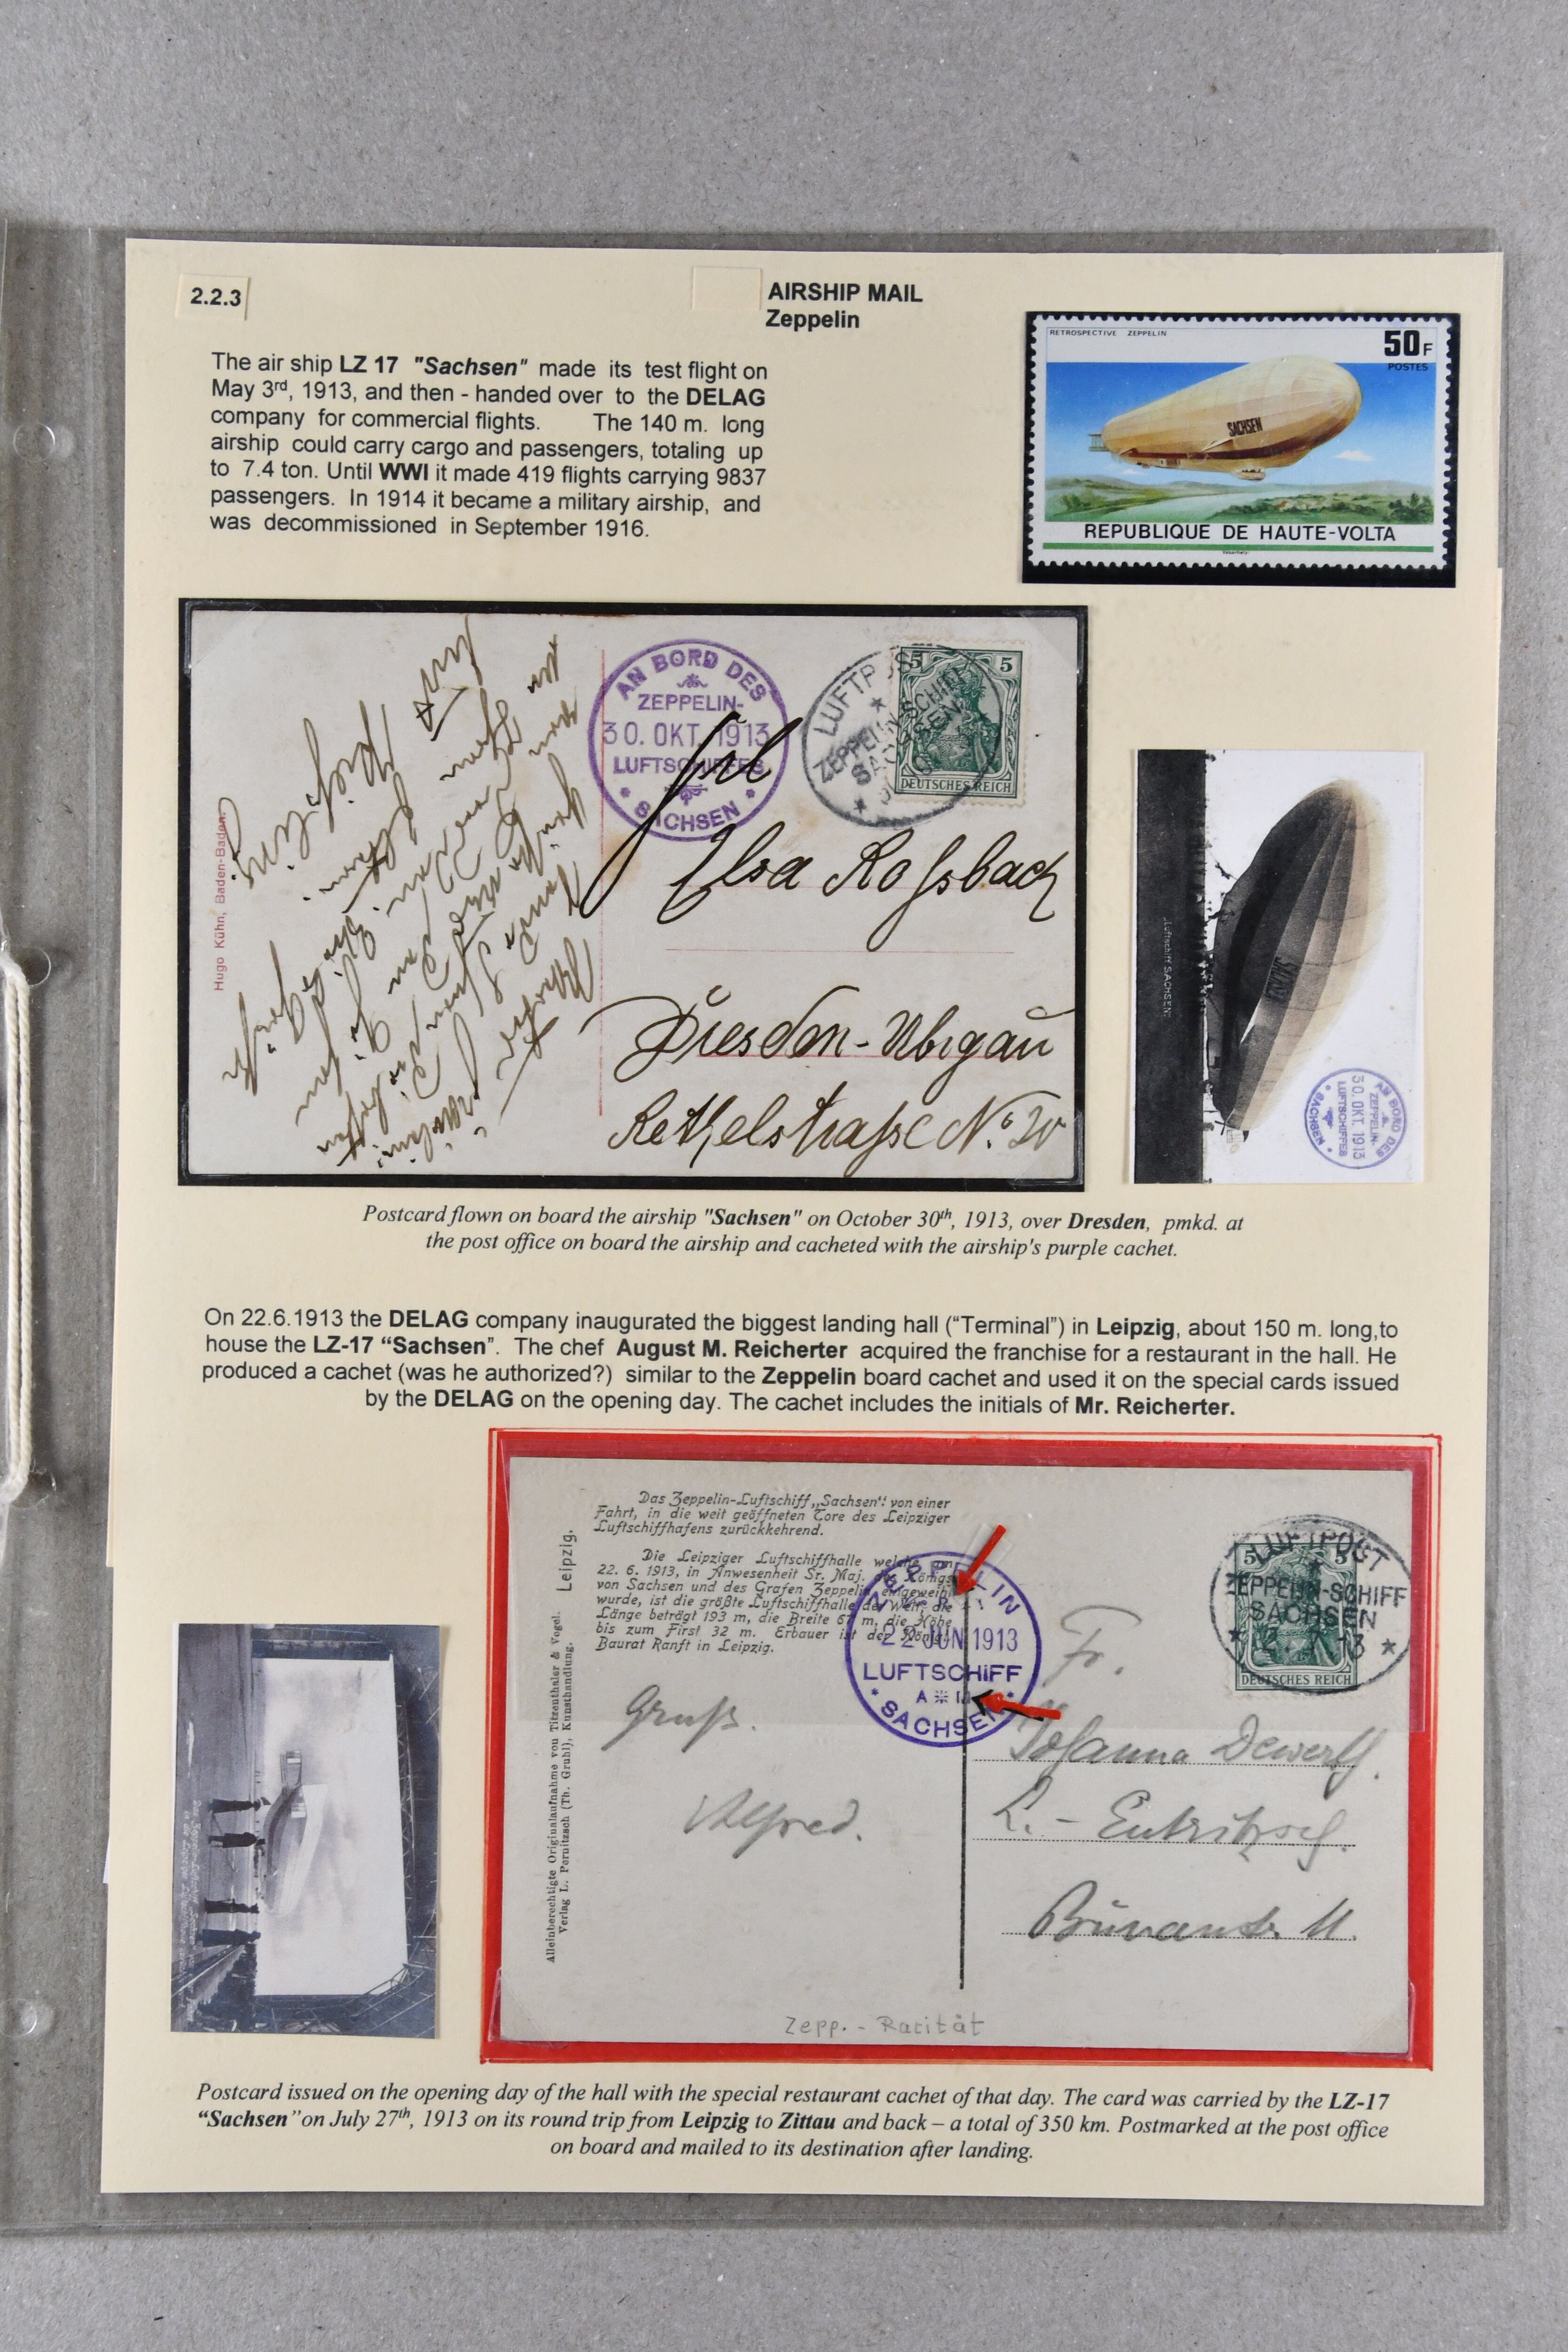 2.2.3
AIRSHIP MAIL
Zeppelin
The air ship LZ 17 "Sachsen" made its test flight on
May 3rd, 1913, and then - handed over to the DELAG
company for commercial flights. The 140 m. long
airship could carry cargo and passengers, totaling up
to 7.4 ton. Until WWI it made 419 flights carrying 9837
passengers. In 1914 it became a military airship, and
was decommissioned in September 1916.
RETROSPECTIVE ZEPPELIN
50F
POSTES
SACHSEN
REPUBLIQUE DE HAUTE-VOLTA
Hugo Kühn, Baden-Baden.
AN BORD DES
ZEPPELIN-
30. OKT. 1913
LUFTSCHIFFES
SACHSEN
LUFTPOST
ZEPPELIN-SCHIFF
SACHSEN
5 5
DEUTSCHES REICH
Frl
Elsa Roßbach
Dresden-Übigau
Rethelstraße No.
Luftschiff SACHSEN.
AN BORD DES
ZEPPELIN-
30. OKT. 1913
LUFTSCHIFFES
SACHSEN
Postcard flown on board the airship "Sachsen" on October 30th, 1913, over Dresden, pmkd. at
the post office on board the airship and cacheted with the airship's purple cachet.
On 22.6.1913 the DELAG company inaugurated the biggest landing hall (“Terminal”) in Leipzig, about 150 m. long,to
house the LZ-17 “Sachsen”. The chef August M. Reicherter acquired the franchise for a restaurant in the hall. He
produced a cachet (was he authorized?) similar to the Zeppelin board cachet and used it on the special cards issued
by the DELAG on the opening day. The cachet includes the initials of Mr. Reicherter.
Das Zeppelin-Luftschiff „Sachsen“ von einer
Fahrt, in die weit geöffneten Tore des Leipziger
Luftschiffhafens zurückkehrend.
Die Leipziger Luftschiffhalle welche am
22. 6. 1913, in Anwesenheit Sr. Maj. des Königs
von Sachsen und des Grafen Zeppelin eingeweiht
wurde, ist die größte Luftschiffhalle der Welt, die
Länge beträgt 193 m, die Breite 67 m, die Höhe
bis zum First 32 m. Erbauer ist der Königl.
Baurat Ranft in Leipzig.
Alleinberechtigte Originalaufnahme von Titzenthaler & Vogel. Leipzig.
Verlag L. Pernitzsch (Th. Gruhl), Kunsthandlung.
ZEPPELIN
R
22 JUN 1913
LUFTSCHIFF
A M
SACHSEN
LUFTPOST
ZEPPELIN-SCHIFF
SACHSEN
5 5
DEUTSCHES REICH
Gruß.
Alfred.
Fr.
Johanna
L.- Eutritzsch.
11.
Zepp. - Rarität
Postcard issued on the opening day of the hall with the special restaurant cachet of that day. The card was carried by the LZ-17
“Sachsen”on July 27th, 1913 on its round trip from Leipzig to Zittau and back – a total of 350 km. Postmarked at the post office
on board and mailed to its destination after landing.